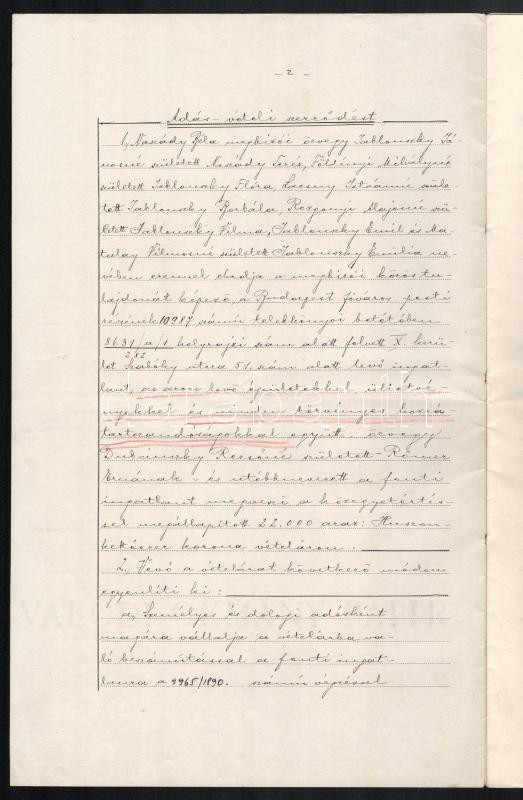 - 2 -
Adás-vételi szerződést
1, Naszády Béla megbizói özvegy Jablonszky Já-
nosné született Naszády Teréz, Földényi Mihályné
született Jablonszky Flóra, Istvánné szüle-
tett Jablonszky Borbála, Rozgonyi Alajosné szü-
letett Jablonszky Vilma, Jablonszky Emil és Ma-
tulay Vilmosné született Jablonszky Emilia ne-
vében ezennel eladja a megbizói közös tu-
lajdonát képező, a Budapest főváros pesti
részének 10987 számú telekkönyvi betétében
8631/a/1 helyrajzi szám alatt felvett X. kerü-
2/82
let Szabóky utcza 51. szám alatt levő ingat-
lant, az azon levő épületekkel ültetvé-
nyekkel és minden törvényes hozzá-
tartozandóságokkal együtt, özvegy
Rezsőné született Römer
Ernának - és utóbbnevezett a fenti
ingatlant megveszi a közegyetértés-
sel megállapított 22.000 azaz: Huszon-
kettőezer korona vételáron.
2, Vevő a vételárat következő módon
egyenlíti ki:
a, Személyes és dologi adósként
magára vállalja a vételárba va-
ló beszámítással a fenti ingat-
lanra a 9965/1890. számú végzéssel